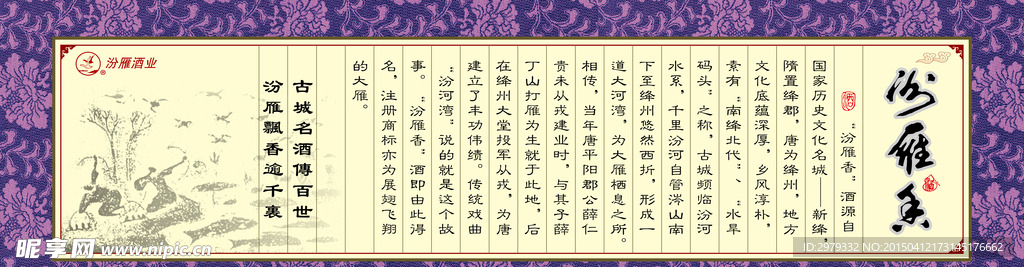 汾雁香
“汾雁香”酒源自
国家历史文化名城——新绛
隋置绛郡，唐为绛州，地方
文化底蕴深厚，乡风淳朴，
素有“南绛北代”、“水旱
码头”之称，古城频临汾河
水系，千里汾河自管涔山南
下至绛州悠然西折，形成一
道大河湾，为大雁栖息之所。
相传，当年唐平阳郡公薛仁
贵未从戎建业时，与其子薛
丁山打雁为生就于此地，后
在绛州大堂投军从戎，为唐
建立了丰功伟绩。传统戏曲
“汾河湾”说的就是这个故
事。“汾雁香”酒即由此得
名，注册商标亦为展翅飞翔
的大雁。
古城名酒傳百世
汾雁飄香逾千裏
汾雁酒业
®
昵享网 www.nipic.cn
ID:2979332 NO:20150412173145176662